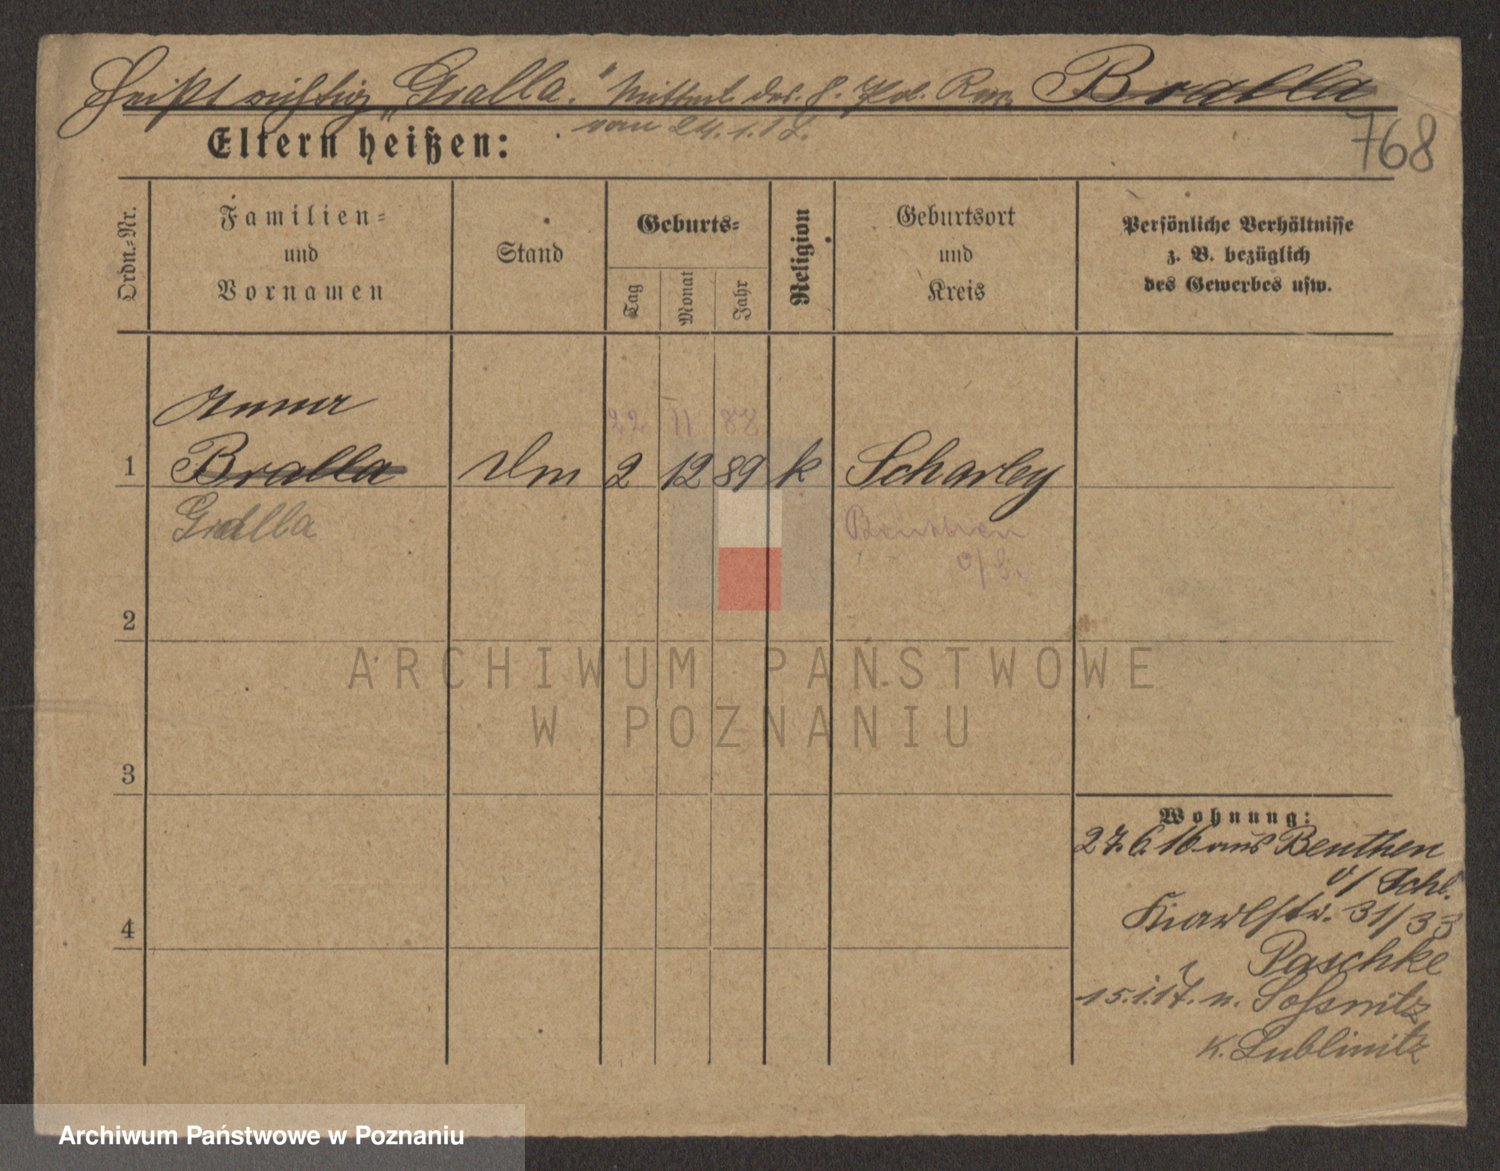 Heißt richtig „Gralla." Mitteil. des. 8. Pol. Rev. Bralla
vom 24.1.17.
768
Eltern heißen:
Ordn.-Nr.
Familien-
und
Vornamen
Stand
Geburts-
Tag
Monat
Jahr
Religion
Geburtsort
und
Kreis
Persönliche Verhältnisse
z. B. bezüglich
des Gewerbes usw.
Anna
22 11 87
1 Bralla Dm 2 12 89 k Scharley
Gralla
Beuthen
o/S.
2
ARCHIWUM PAŃSTWOWE
W POZNANIU
3
Wohnung:
27.6.16 aus Beuthen
o/Schl.
Karlstr. 31/33
4
Paschke
15.1.17. n. Sossnitz
K. Lublinitz
Archiwum Państwowe w Poznaniu